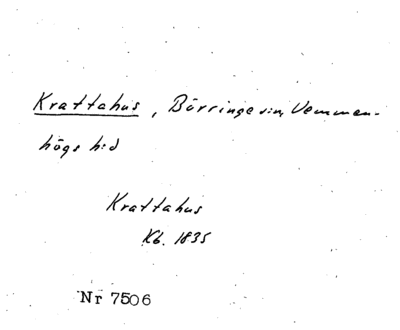 Krattahus, Börringe sn, Vemmen-
högs hd
Krattahus
Kb. 1835
Nr 7506